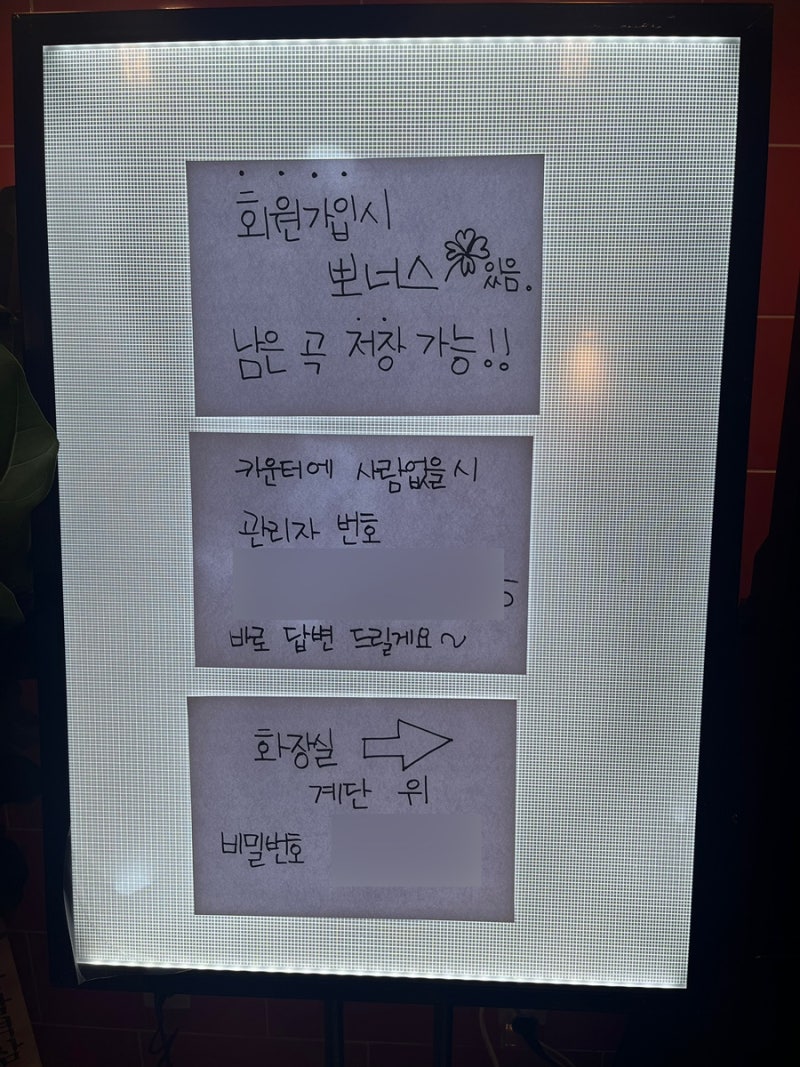 회원가입시
뽀너스 있음.
남은 곡 저장 가능!!
카운터에 사람없을 시
관리자 번호
바로 답변 드릴게요~
화장실
계단 위
비밀번호